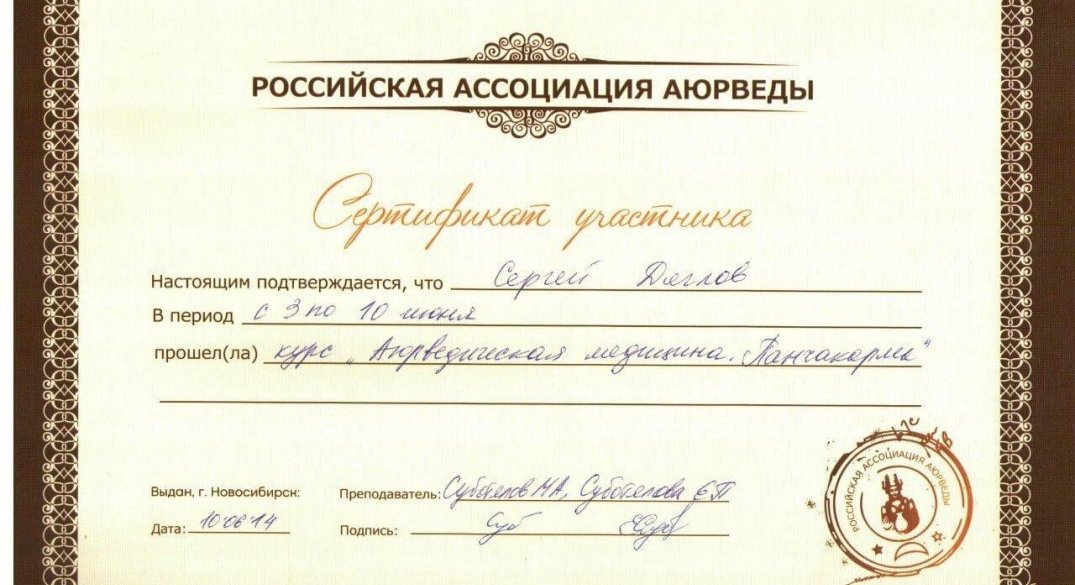 РОССИЙСКАЯ АССОЦИАЦИЯ АЮРВЕДЫ
Сертификат участника
Настоящим подтверждается, что Сергей Дяглов
В период с 3 по 10 июня
прошел(ла) курс „Аюрведическая медицина. Панчакарма"
Выдан, г. Новосибирск:
Преподаватель: Субочелова ЕП
Дата: 10 06 14
Подпись:
РОССИЙСКАЯ АССОЦИАЦИЯ АЮРВЕДЫ